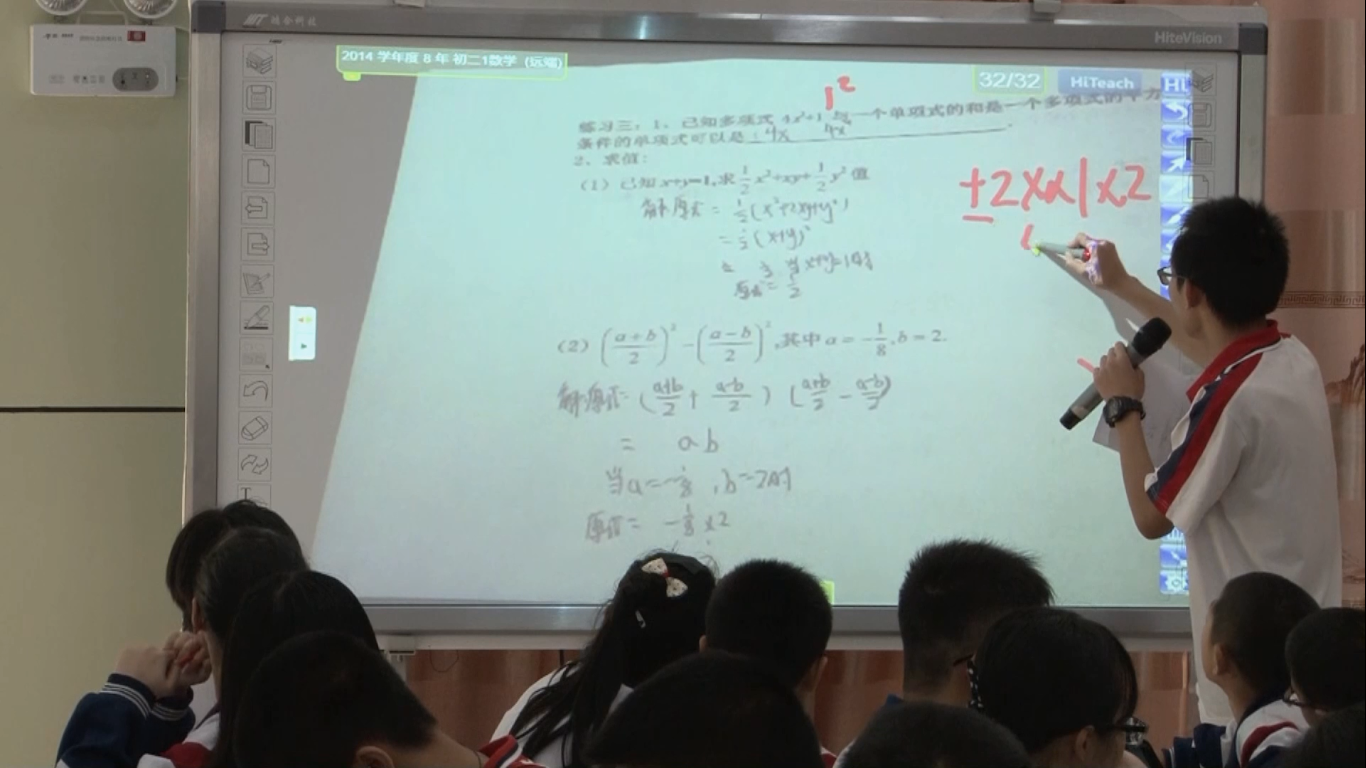 HiteVision
2014 学年度 8 年 初二1数学 (远端)
32/32
HiTeach
1²
练习三：1、已知多项式 4x²+1 与一个单项式的和是一个多项式的平方
条件的单项式可以是：4x 4x⁴
±2×x|×2
2、求值：
（1）已知 x+y=1,求 1/2 x²+xy+ 1/2 y² 值
解:原式 = 1/2 (x²+2xy+y²)
= 1/2 (x+y)²
当x+y=1时
原式= 1/2
（2）((a+b)/2)² − ((a−b)/2)² ,其中 a = −1/8 , b = 2.
解:原式= ( (a+b)/2 + (a-b)/2 ) ( (a+b)/2 − (a-b)/2 )
= ab
当a=-1/8 ,b=2时
原式= -1/8 ×2